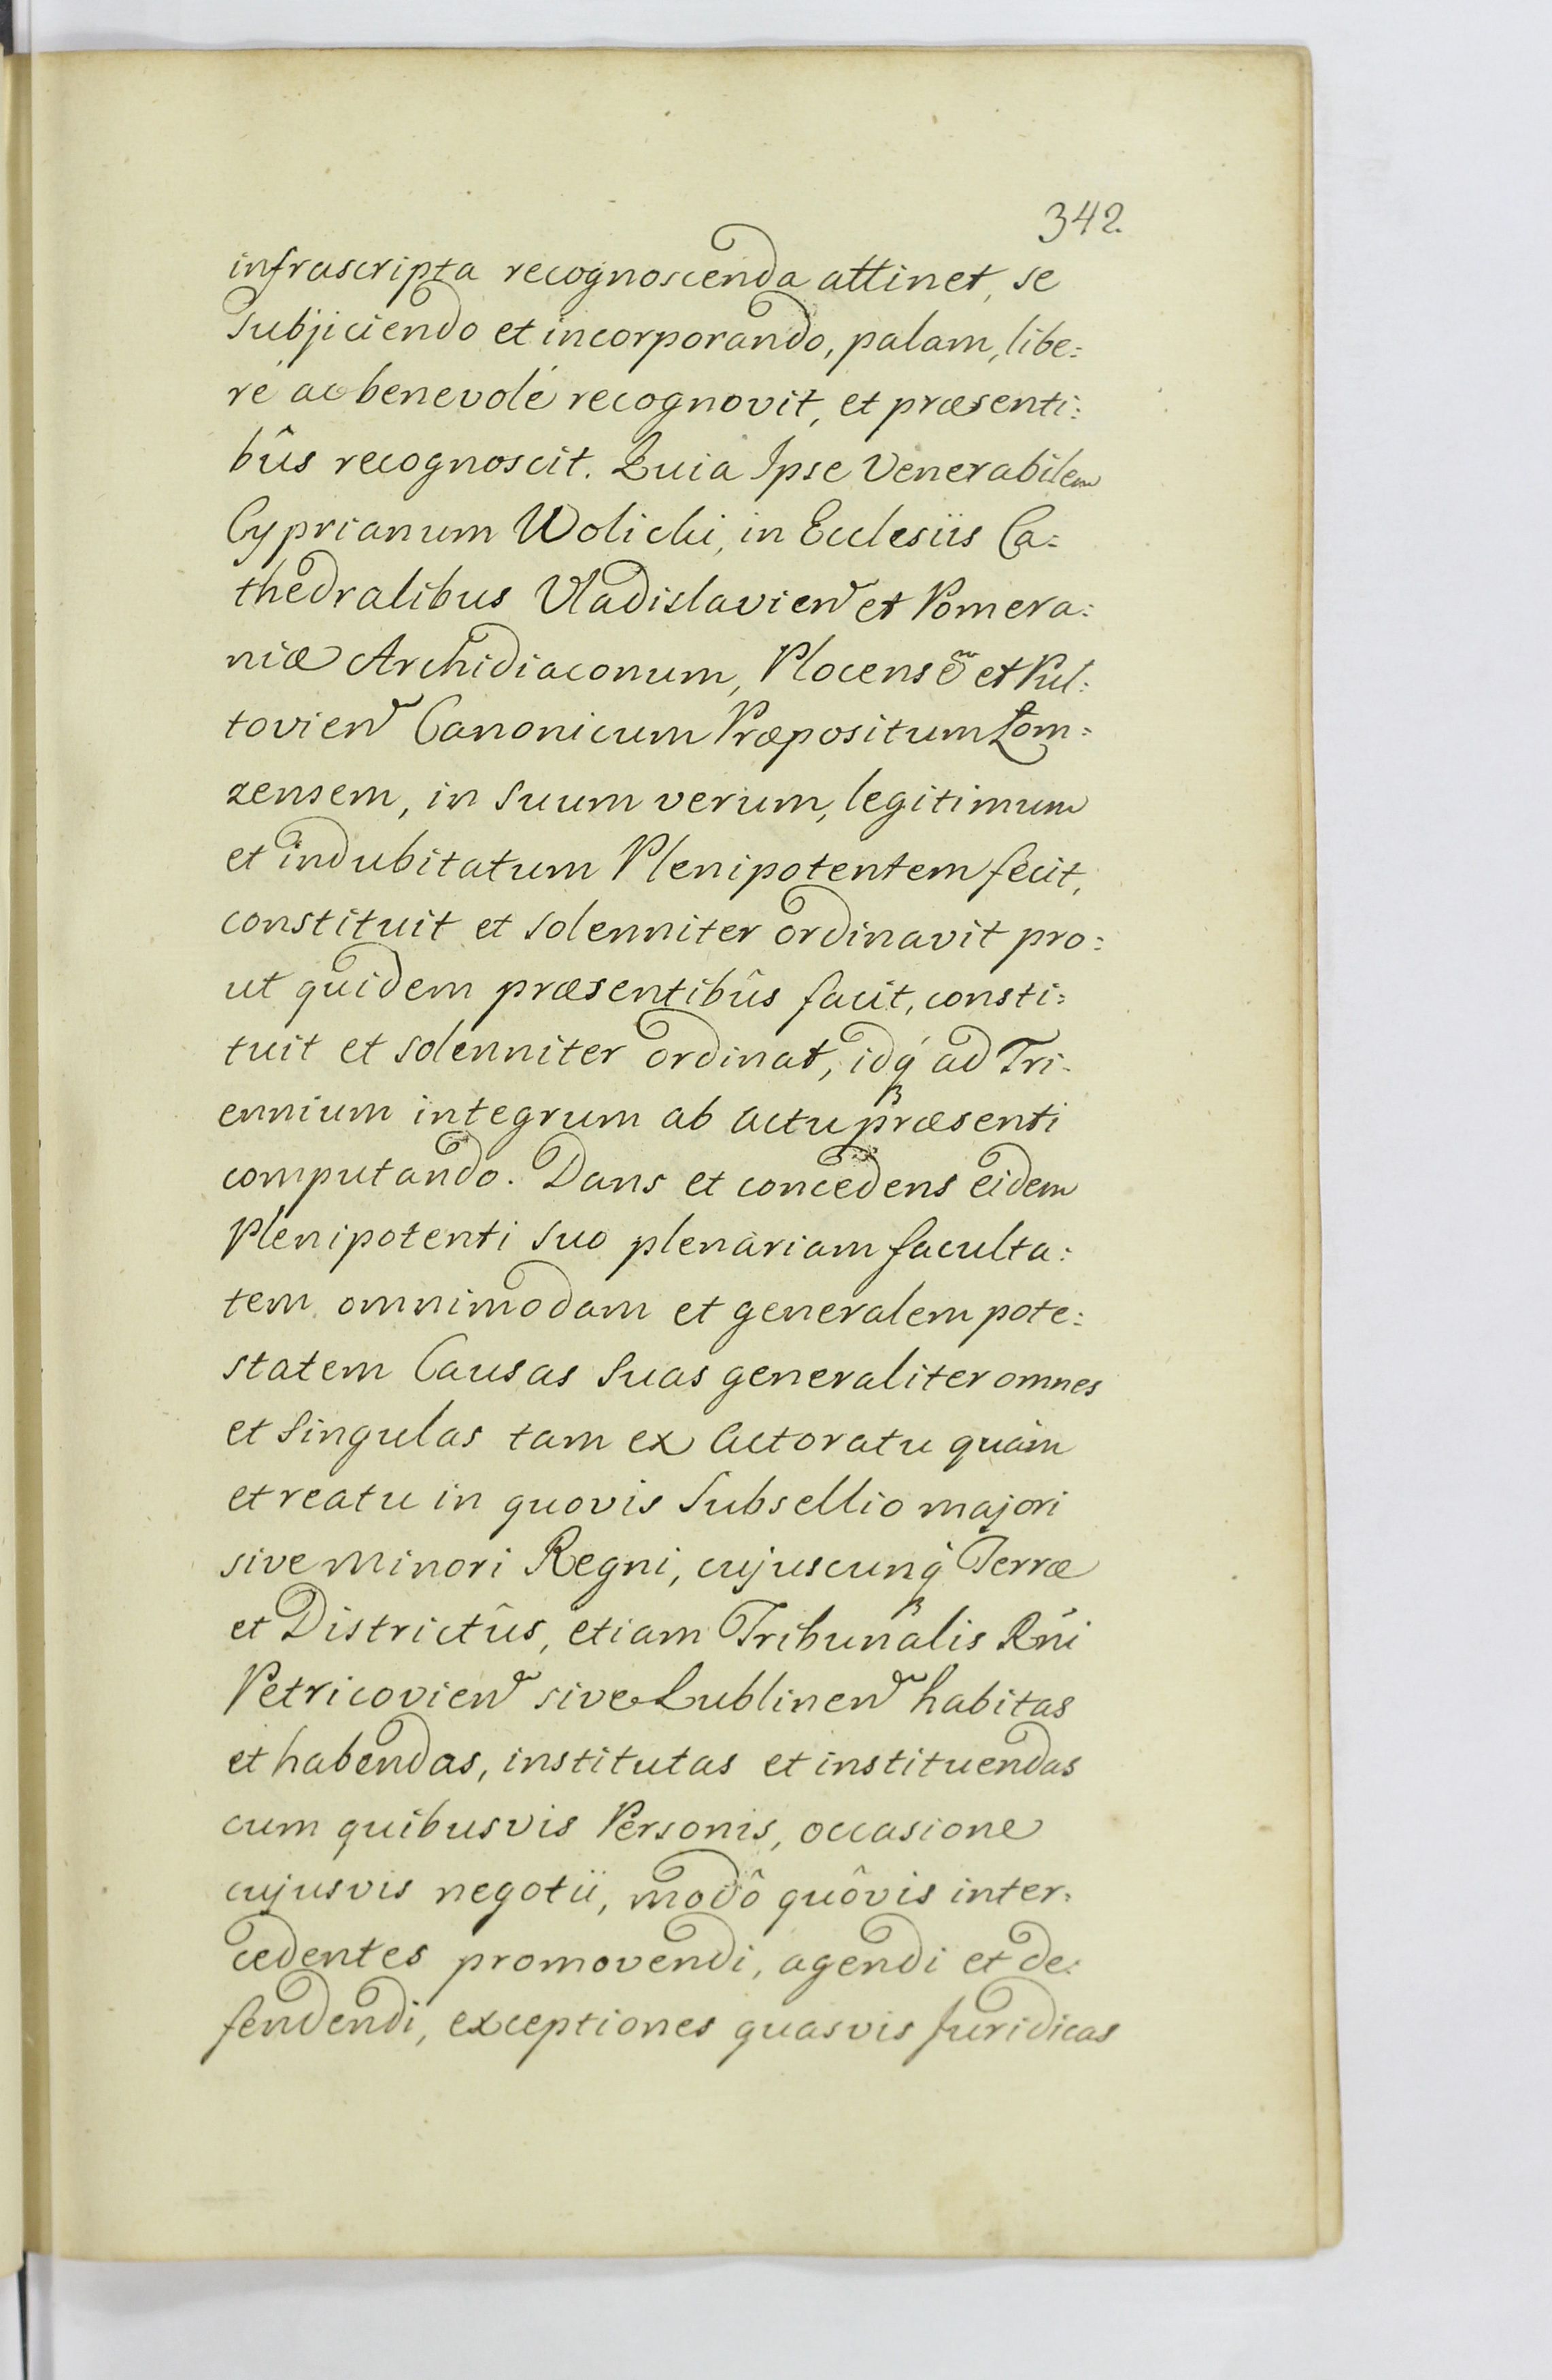 342.
infrascripta recognoscenda attinet, se
subjiciendo et incorporando, palam, libe:
ré ac benevolé recognovit, et præsenti:
bûs recognoscit. Quia Ipse Venerabilem
Cyprianum Wolicki, in Ecclesiis Ca:
thedralibus Vladislavien̄ et Pomera:
niæ Archidiaconum, Plocensē et Pul:
tovien̄ Canonicum Præpositum Łom:
zensem, in suum verum, legitimum
et indubitatum Plenipotentem fecit,
constituit et solenniter ordinavit pro:
ut quidem præsentibûs facit, consti:
tuit et solenniter ordinat, idq́ ad Tri:
ennium integrum ab actu præsenti
computando. Dans et concedens eidem
Plenipotenti suo plenariam faculta:
tem omnimodam et generalem pote:
statem Causas suas generaliter omnes
et singulas tam ex Actoratu quàm
et reatu in quovis Subsellio majori
sive minori Regni, cujuscunq́ Terræ
et Districtûs, etiam Tribunalis Rñi
Petricovien̄ sive Lublinen̄ habitas
et habendas, institutas et instituendas
cum quibusvis Personis, occasione
cujusvis negotii, modô quôvis inter:
cedentes promovendi, agendi et de:
fendendi, exceptiones quasvis Juridicas